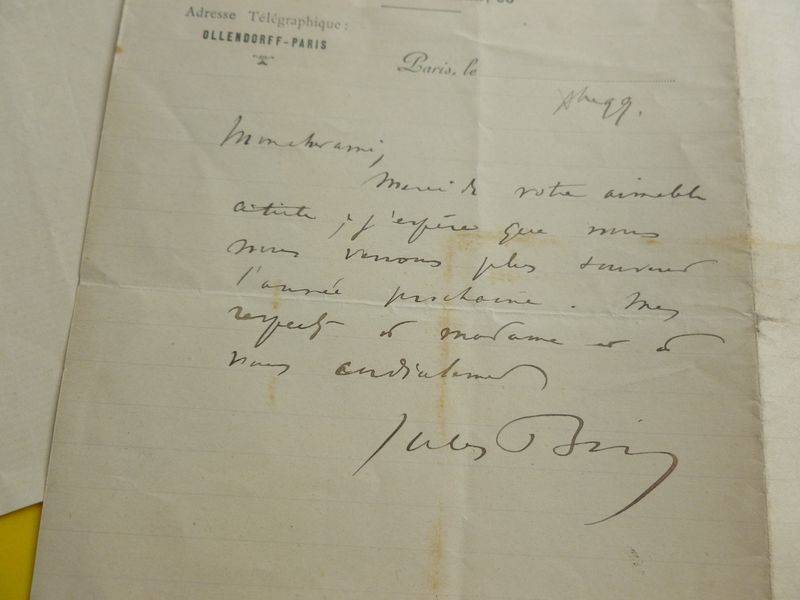 Adresse Télégraphique:
OLLENDORFF-PARIS
Paris, le
Mon cher ami,
Merci de votre aimable
article, j'espère que nous
nous verrons plus souvent
l'année prochaine. Mes
respects à madame et à
vous cordialement
Jules Bois